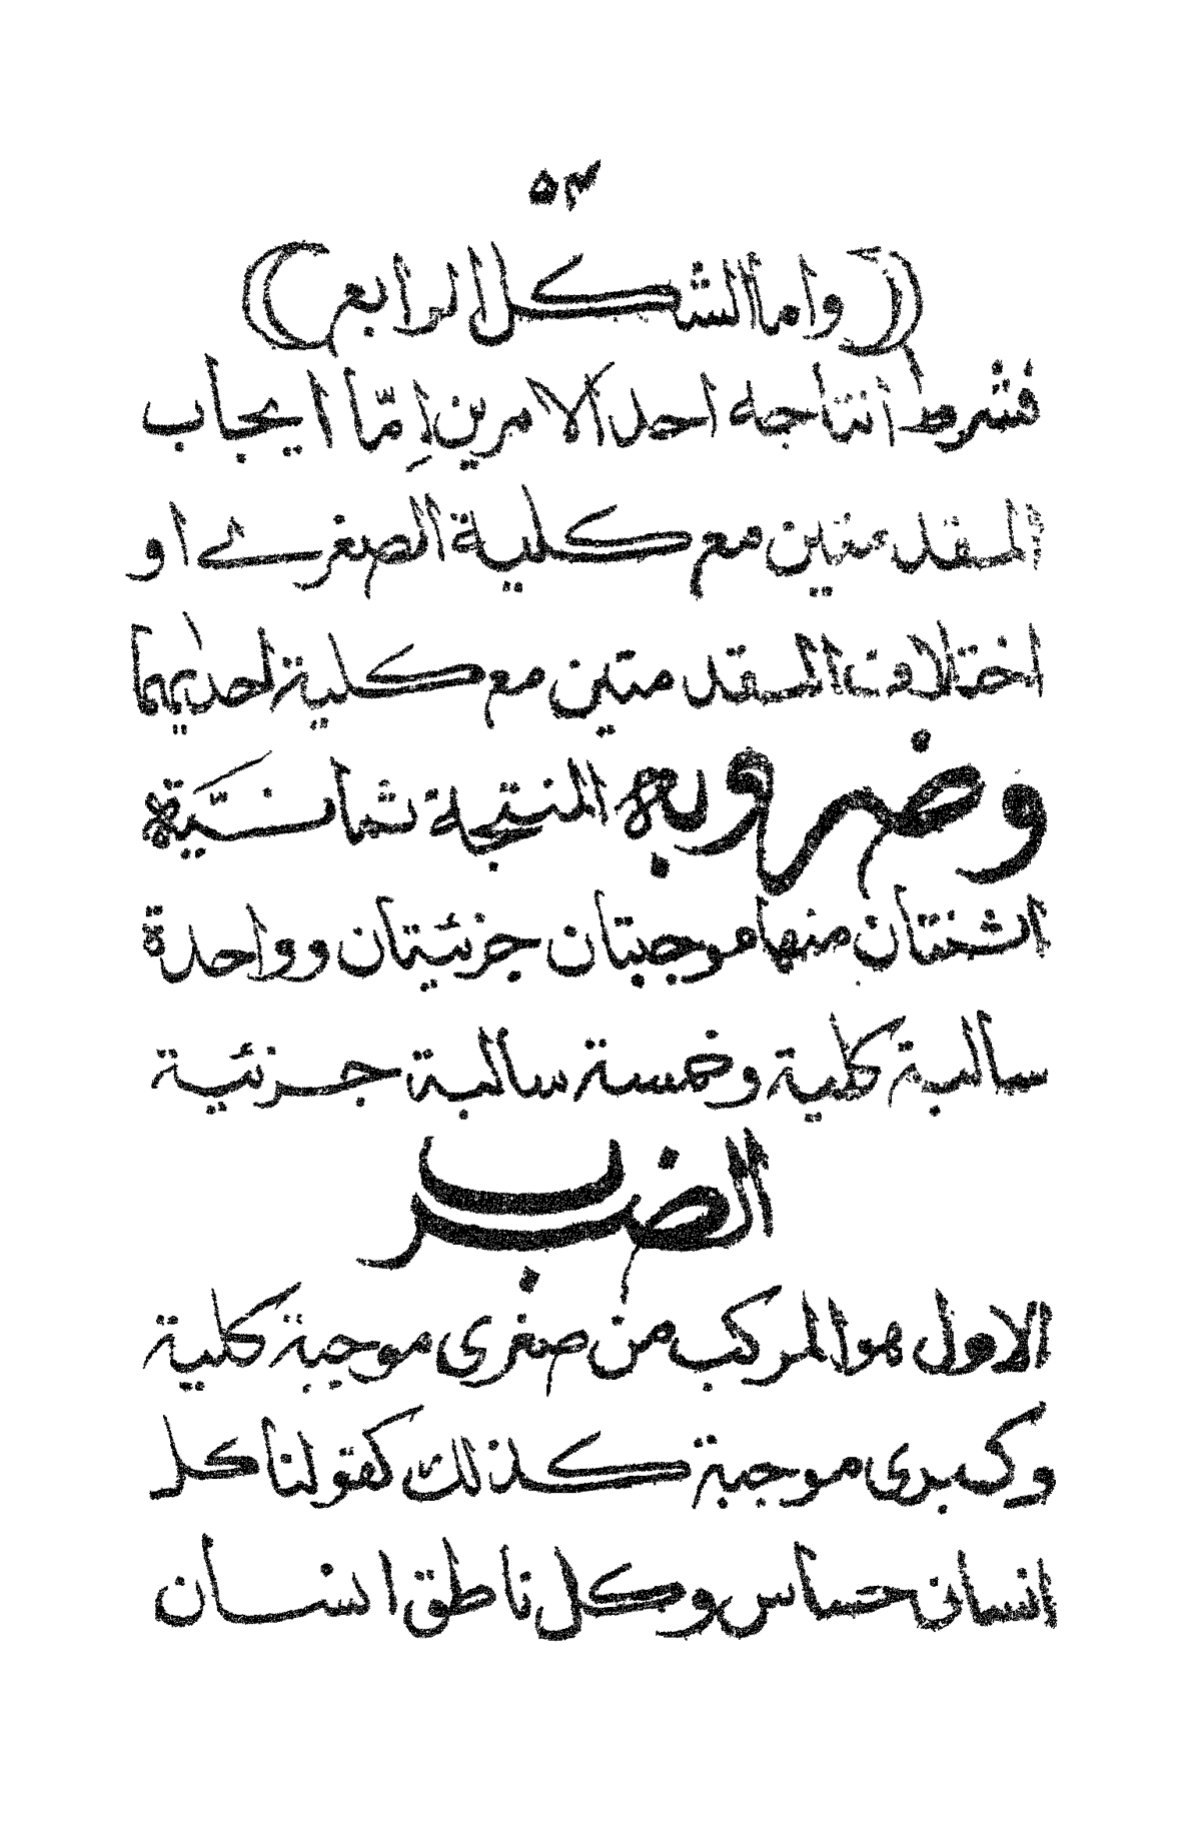 ٥٣
(( واما الشكل الرابع ))
فشروط انتاجه احد الامرين اِمّا ايجاب
المقدمتين مع كلية الصغرے او
اختلاف المقدمتين مع كلية احديهما
وضروبه المنتجة ثمانيّة
اثنتان منها موجبتان جزئيتان وواحدة
سالبة كلية وخمسة سالبة جزئية
الضرب
الاول هو المركب من صغرى موجبة كلية
وكبرى موجبة كذلك كقولنا كل
انسان حساس وكل ناطق انسان